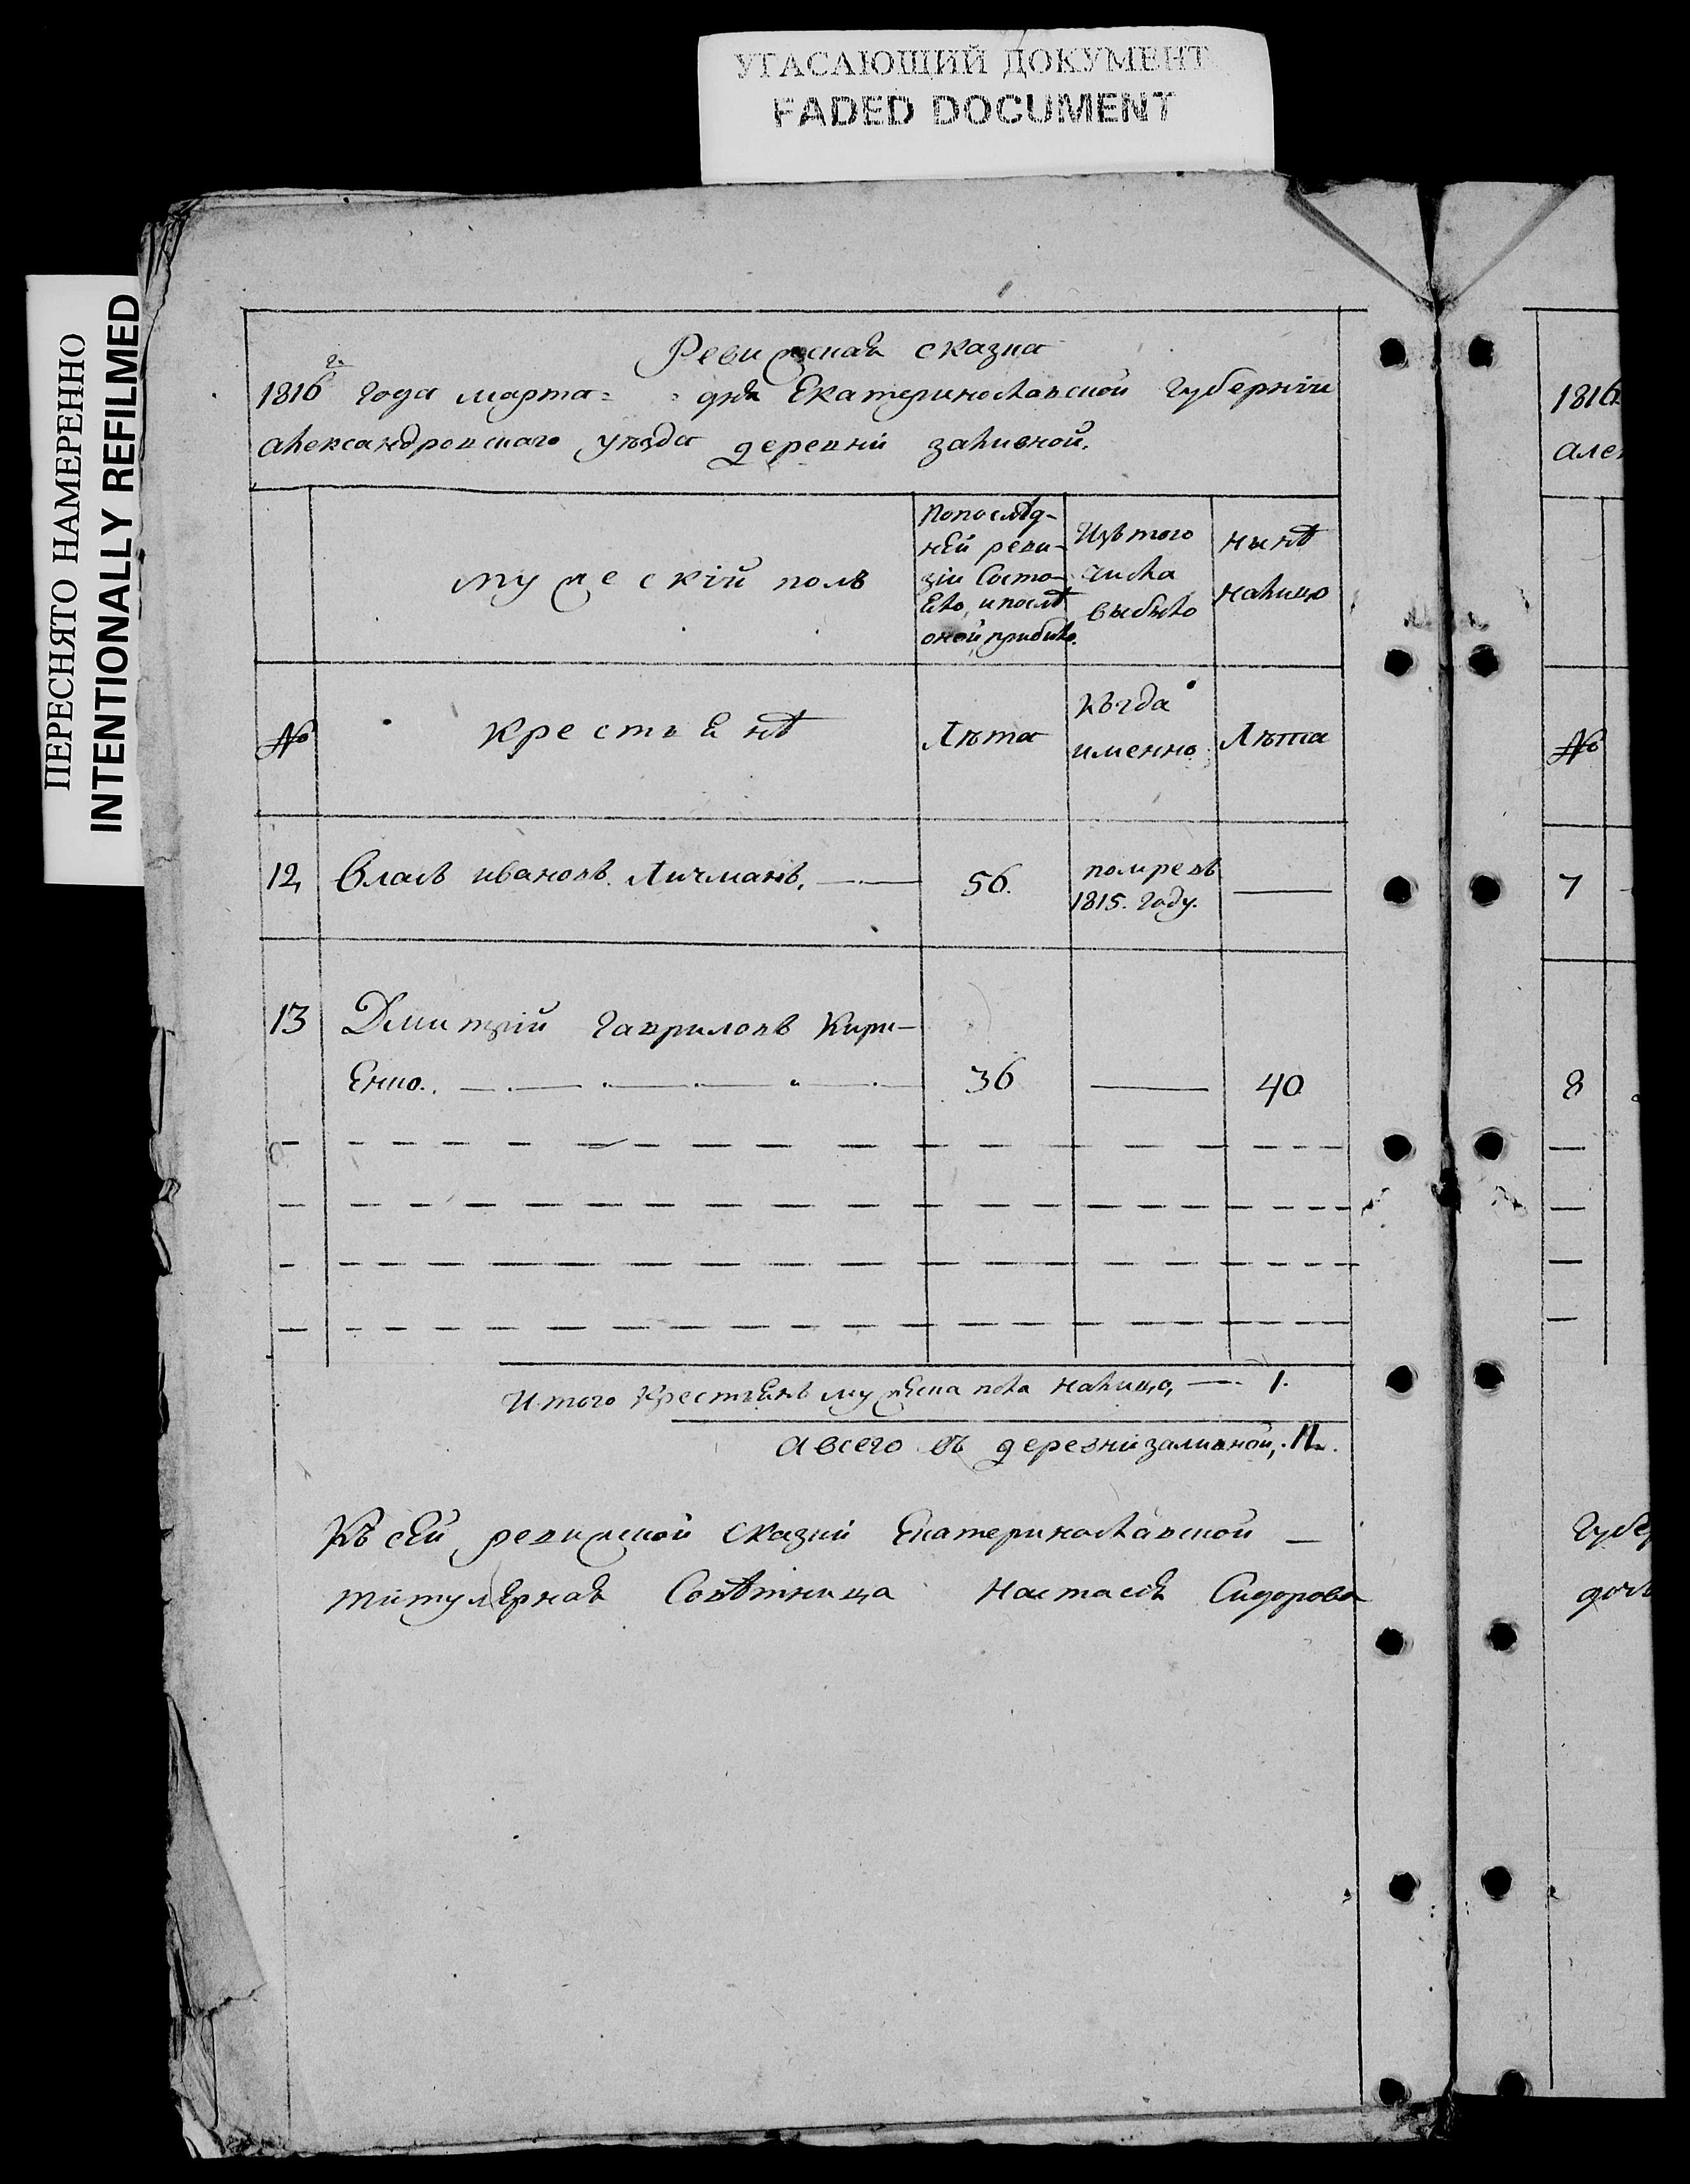 УГАСАЮЩИЙ ДОКУМЕНТ
FADED DOCUMENT
ПЕРЕСНЯТО НАМЕРЕННО
INTENTIONALLY REFILMED
Ревижская сказка
1816го года марта = = дня Екатеринославской Губерніи
александровскаго уѣзда деревни заливной.
мужескій полъ
По послѣд-
ней реви-
зіи Состо-
яло, и послѣ
оной прибыло.
Изъ того
числа
выбыло
нынѣ
налицо
№
крестьянѣ
Лѣта
Когда
именно.
Лѣта
12, Власъ ивановъ. Личманъ.
56.
помре въ
1815. году.
13 Дмитрій Гавриловъ Кири-
Енко.
36
40
Итого крестьянъ мужеска пола налицо, — 1.
а всего въ деревни заливной, . 11.
Къ сей ревижской Сказки Екатеринославской —
титулярная Совѣтница Настасья Сидорова
1816
але
№
7
8
Губер